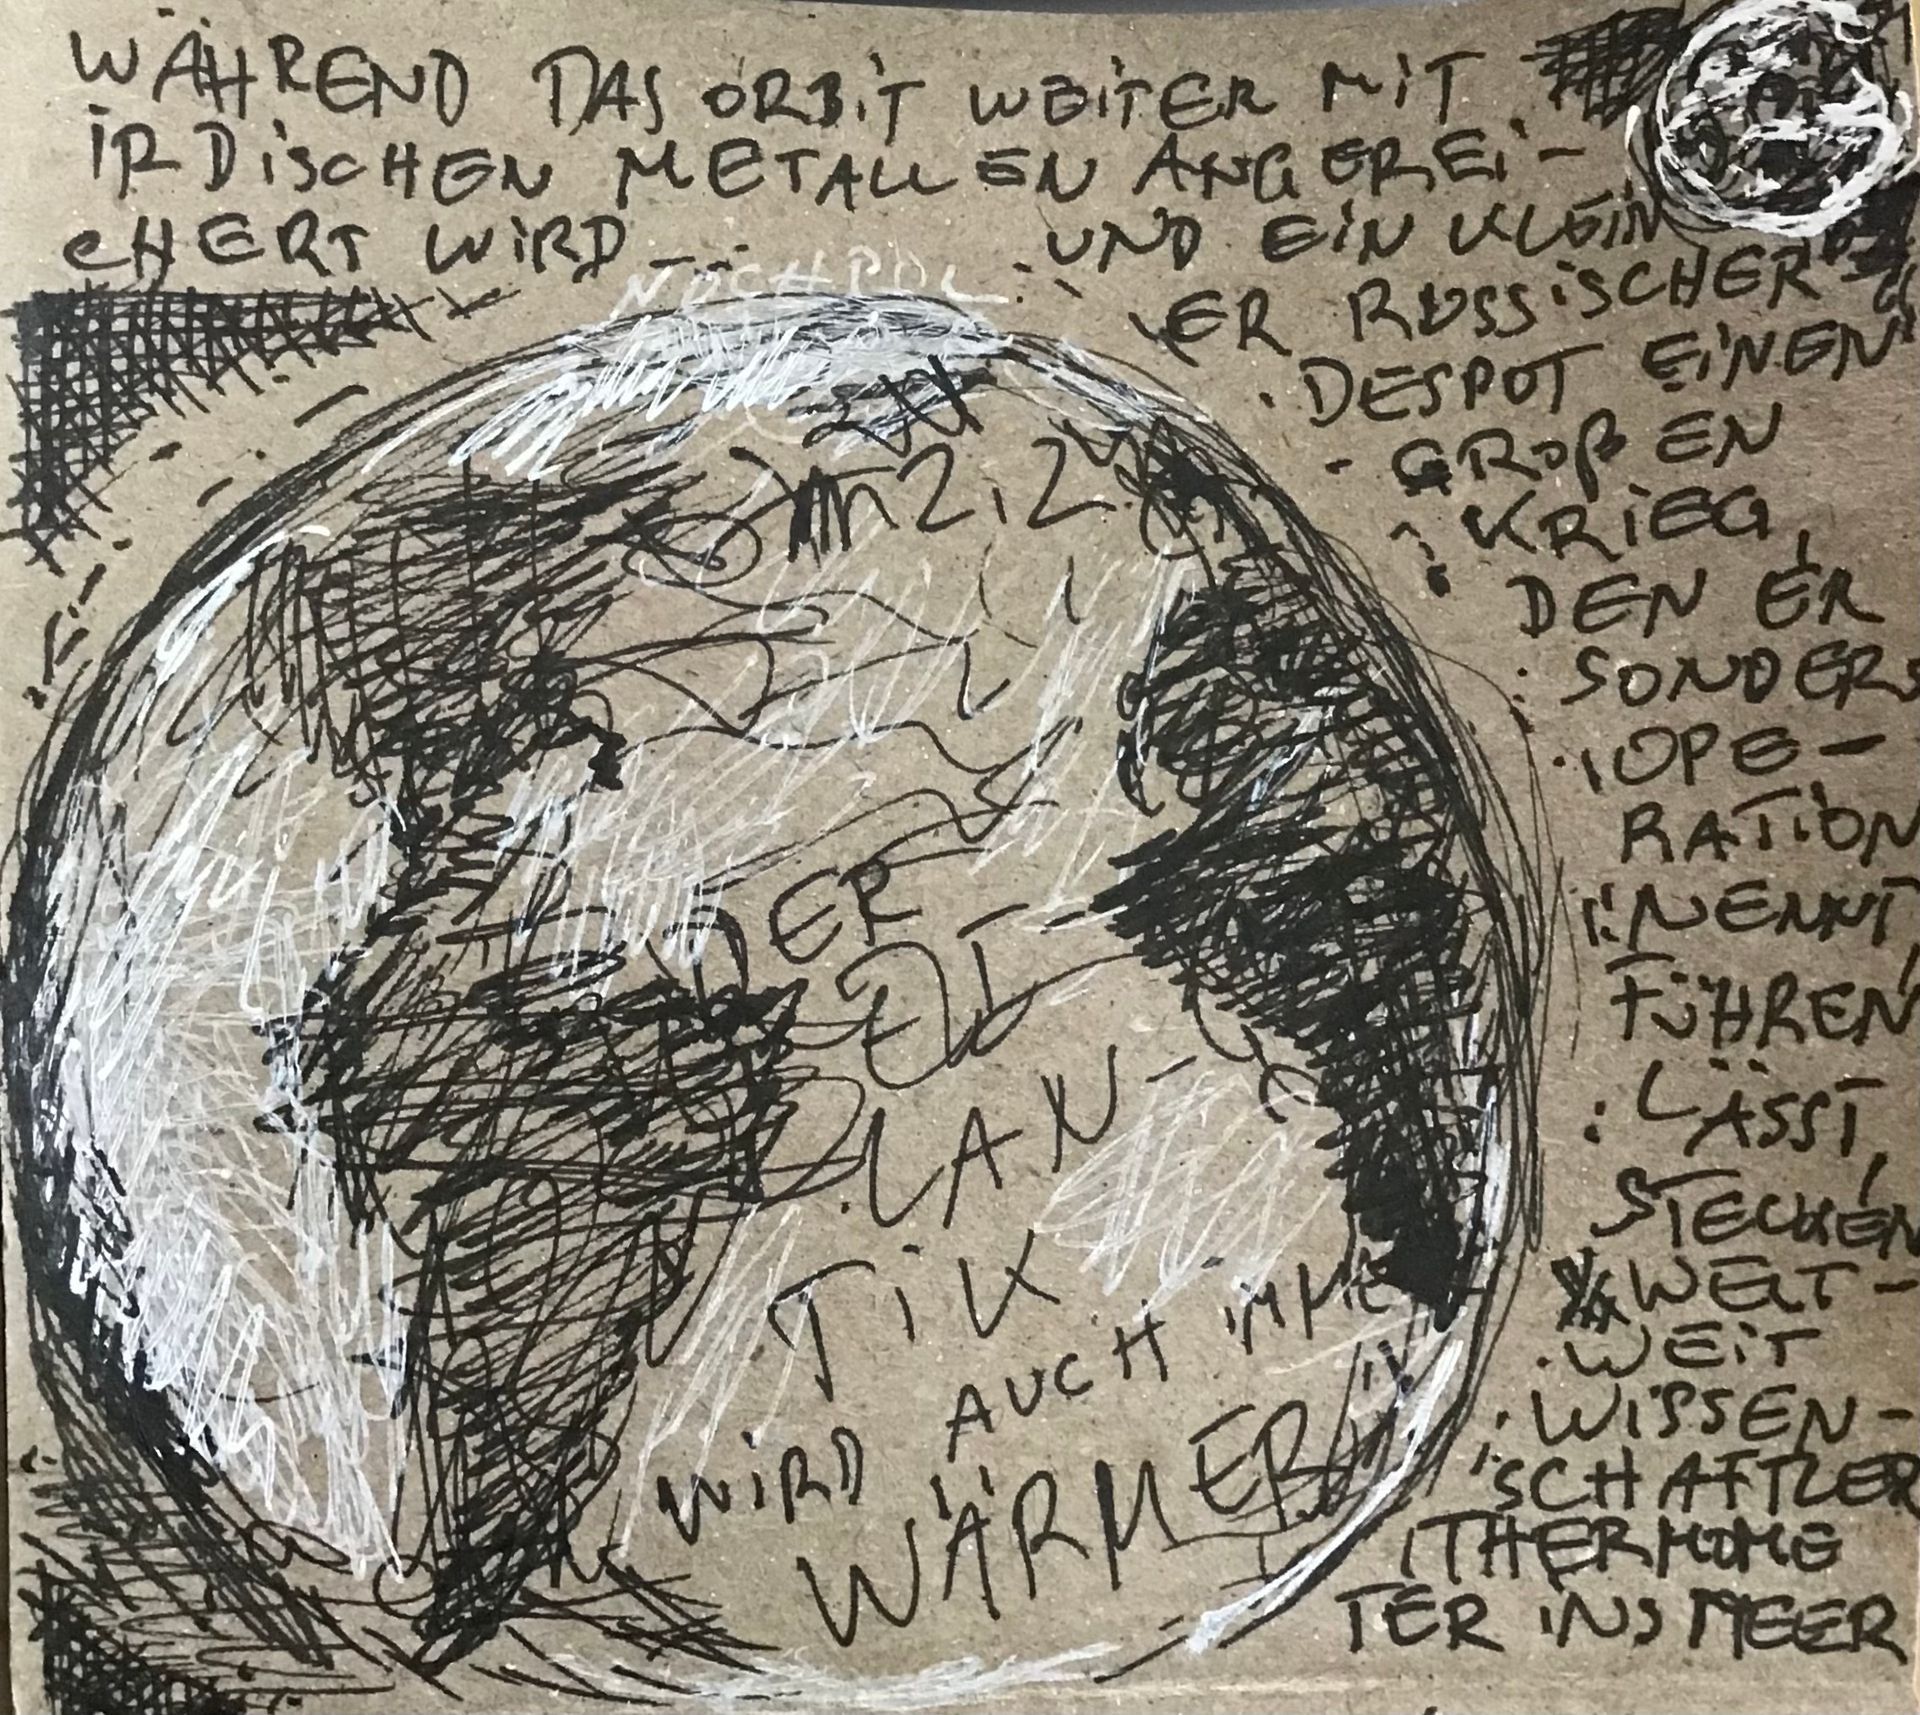 WÄHREND DAS ORBIT WEITER MIT
IRDISCHEN METALLEN ANGEREI-
CHERT WIRD ---
UND EIN KLEIN
ER RUSSISCHER
DESPOT EINEN
GROßEN
KRIEG,
DEN ER
SONDERS
OPE-
RATION
NENNT,
FÜHREN
LÄSST,
STECKEN
WELT-
WEIT
WISSEN-
SCHAFTLER
THERMOME
TER INS MEER
NOCHPOL
DER
AT-
LAN-
TIK
WIRD AUCH IMME
WÄRMER